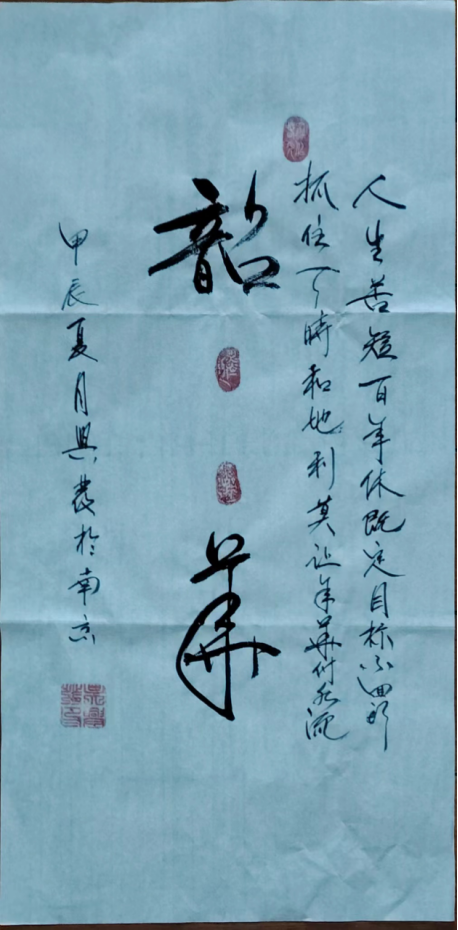 人生苦短百年休既定目标不回头
抓住了時和地利莫让年華付水流
韶華
甲辰夏月興農於南京